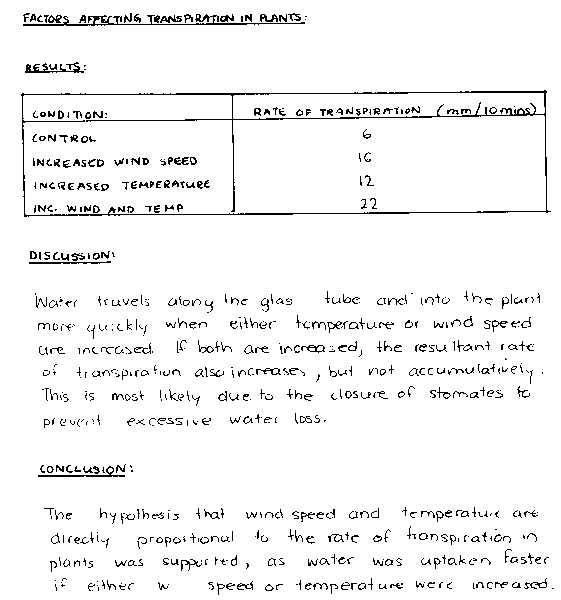 FACTORS AFFECTING TRANSPIRATION IN PLANTS:
RESULTS:
CONDITION: RATE OF TRANSPIRATION (mm/10mins)
CONTROL 6
INCREASED WIND SPEED 16
INCREASED TEMPERATURE 12
INC. WIND AND TEMP 22
DISCUSSION:
Water travels along the glas tube and into the plant
more quickly when either temperature or wind speed
are increased. If both are increased, the resultant rate
of transpiration also increases, but not accumulatively.
This is most likely due to the closure of stomates to
prevent excessive water loss.
CONCLUSION:
The hypothesis that wind speed and temperature are
directly proportional to the rate of transpiration in
plants was supported, as water was uptaken faster
if either w speed or temperature were increased.